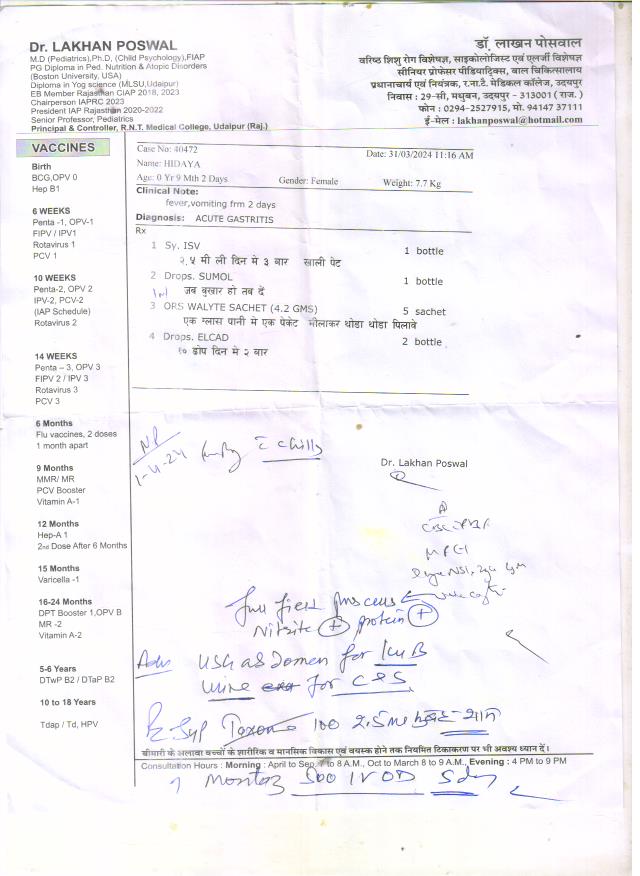 Dr. LAKHAN POSWAL
M.D (Pediatrics),Ph.D, (Child Psychology),FIAP
PG Diploma in Ped. Nutrition & Atopic Disorders
(Boston University, USA)
Diploma in Yog science (MLSU,Udaipur)
EB Member Rajasthan CIAP 2018, 2023
Chairperson IAPRC 2023
President IAP Rajasthan 2020-2022
Senior Professor, Pediatrics
Principal & Controller, R.N.T. Medical College, Udaipur (Raj.)
डॉ. लाखन पोसवाल
वरिष्ठ शिशु रोग विशेषज्ञ, साइकोलोजिस्ट एवं एलर्जी विशेषज्ञ
सीनियर प्रोफेसर पीडियाट्रिक्स, बाल चिकित्सालय
प्रधानाचार्य एवं नियंत्रक, र.ना.टै. मेडिकल कॉलेज, उदयपुर
निवास : 29-सी, मधुबन, उदयपुर - 313001 ( राज. )
फोन : 0294-2527915, मो. 94147 37111
ई-मेल : lakhanposwal@hotmail.com
VACCINES
Birth
BCG,OPV 0
Hep B1
6 WEEKS
Penta -1, OPV-1
FIPV / IPV1
Rotavirus 1
PCV 1
10 WEEKS
Penta-2, OPV 2
IPV-2, PCV-2
(IAP Schedule)
Rotavirus 2
14 WEEKS
Penta – 3, OPV 3
FIPV 2 / IPV 3
Rotavirus 3
PCV 3
6 Months
Flu vaccines, 2 doses
1 month apart
9 Months
MMR/ MR
PCV Booster
Vitamin A-1
12 Months
Hep-A 1
2nd Dose After 6 Months
15 Months
Varicella -1
16-24 Months
DPT Booster 1,OPV B
MR -2
Vitamin A-2
5-6 Years
DTwP B2 / DTaP B2
10 to 18 Years
Tdap / Td, HPV
Case No: 40472
Date: 31/03/2024 11:16 AM
Name: HIDAYA
Age: 0 Yr 9 Mth 2 Days Gender: Female Weight: 7.7 Kg
Clinical Note:
fever,vomiting frm 2 days
Diagnosis: ACUTE GASTRITIS
Rx
1 Sy. ISV 1 bottle
२.५ मी ली दिन मे ३ बार खाली पेट
2 Drops. SUMOL 1 bottle
1ml जब बुखार हो तब दें
3 ORS WALYTE SACHET (4.2 GMS) 5 sachet
एक ग्लास पानी मे एक पेकेट मीलाकर थोडा थोडा पिलावे
4 Drops. ELCAD 2 bottle
१० ड्रोप दिन मे २ बार
Dr. Lakhan Poswal
1-4-24 chills
full field pus cells
Nitrite + protein +
Adv USG abdomen for KUB
urine for C&S
Rx Syp Taxone 100 2.5ml
बीमारी के अलावा बच्चों के शारीरिक व मानसिक विकास एवं वयस्क होने तक नियमित टिकाकरण पर भी अवश्य ध्यान दें।
Consultation Hours : Morning : April to Sep. 7 to 8 A.M., Oct to March 8 to 9 A.M., Evening : 4 PM to 9 PM
Montaz 500 IV OD 5 day